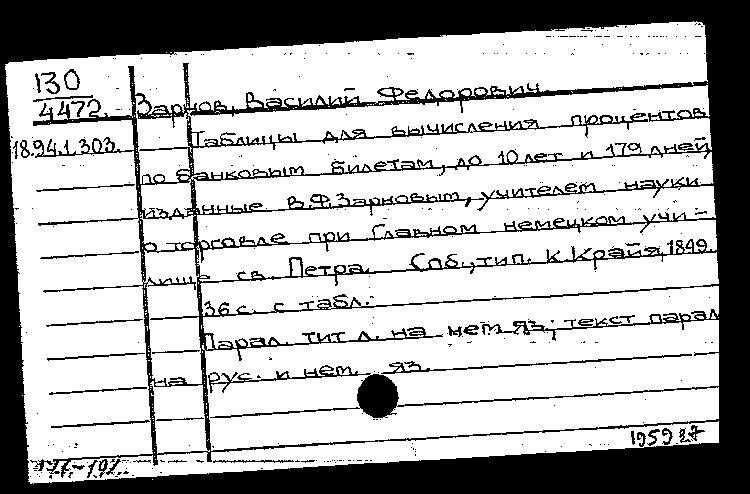 130
4472. Зарнов, Василий Федорович.
18.94.1.303. Таблицы для вычисления процентов
по банковым билетам, до 10 лет и 179 дней,
изданные В.Ф.Зарновым, учителем науки
о торговле при Главном немецком учи-
лище св. Петра. Спб., тип. К. Крайя, 1849.
36 с. с табл.
Парал. тит л. на нем яз; текст парал
на рус. и нем. яз.